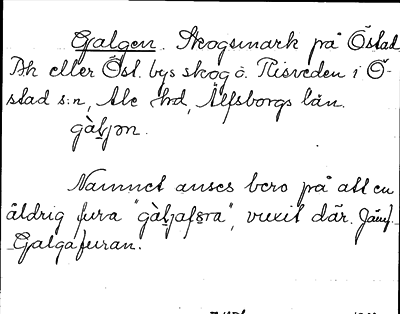 Galgen. Skogsmark på Östad
Ak eller Öst. bys skog ö. Risveden i Ö-
stad s:n, Ale hrd, Älfsborgs län.
gàljən.
Namnet anses bero på att en
äldrig fura "gàljafᴓra", vuxit där. Jämf.
Galgafuran.